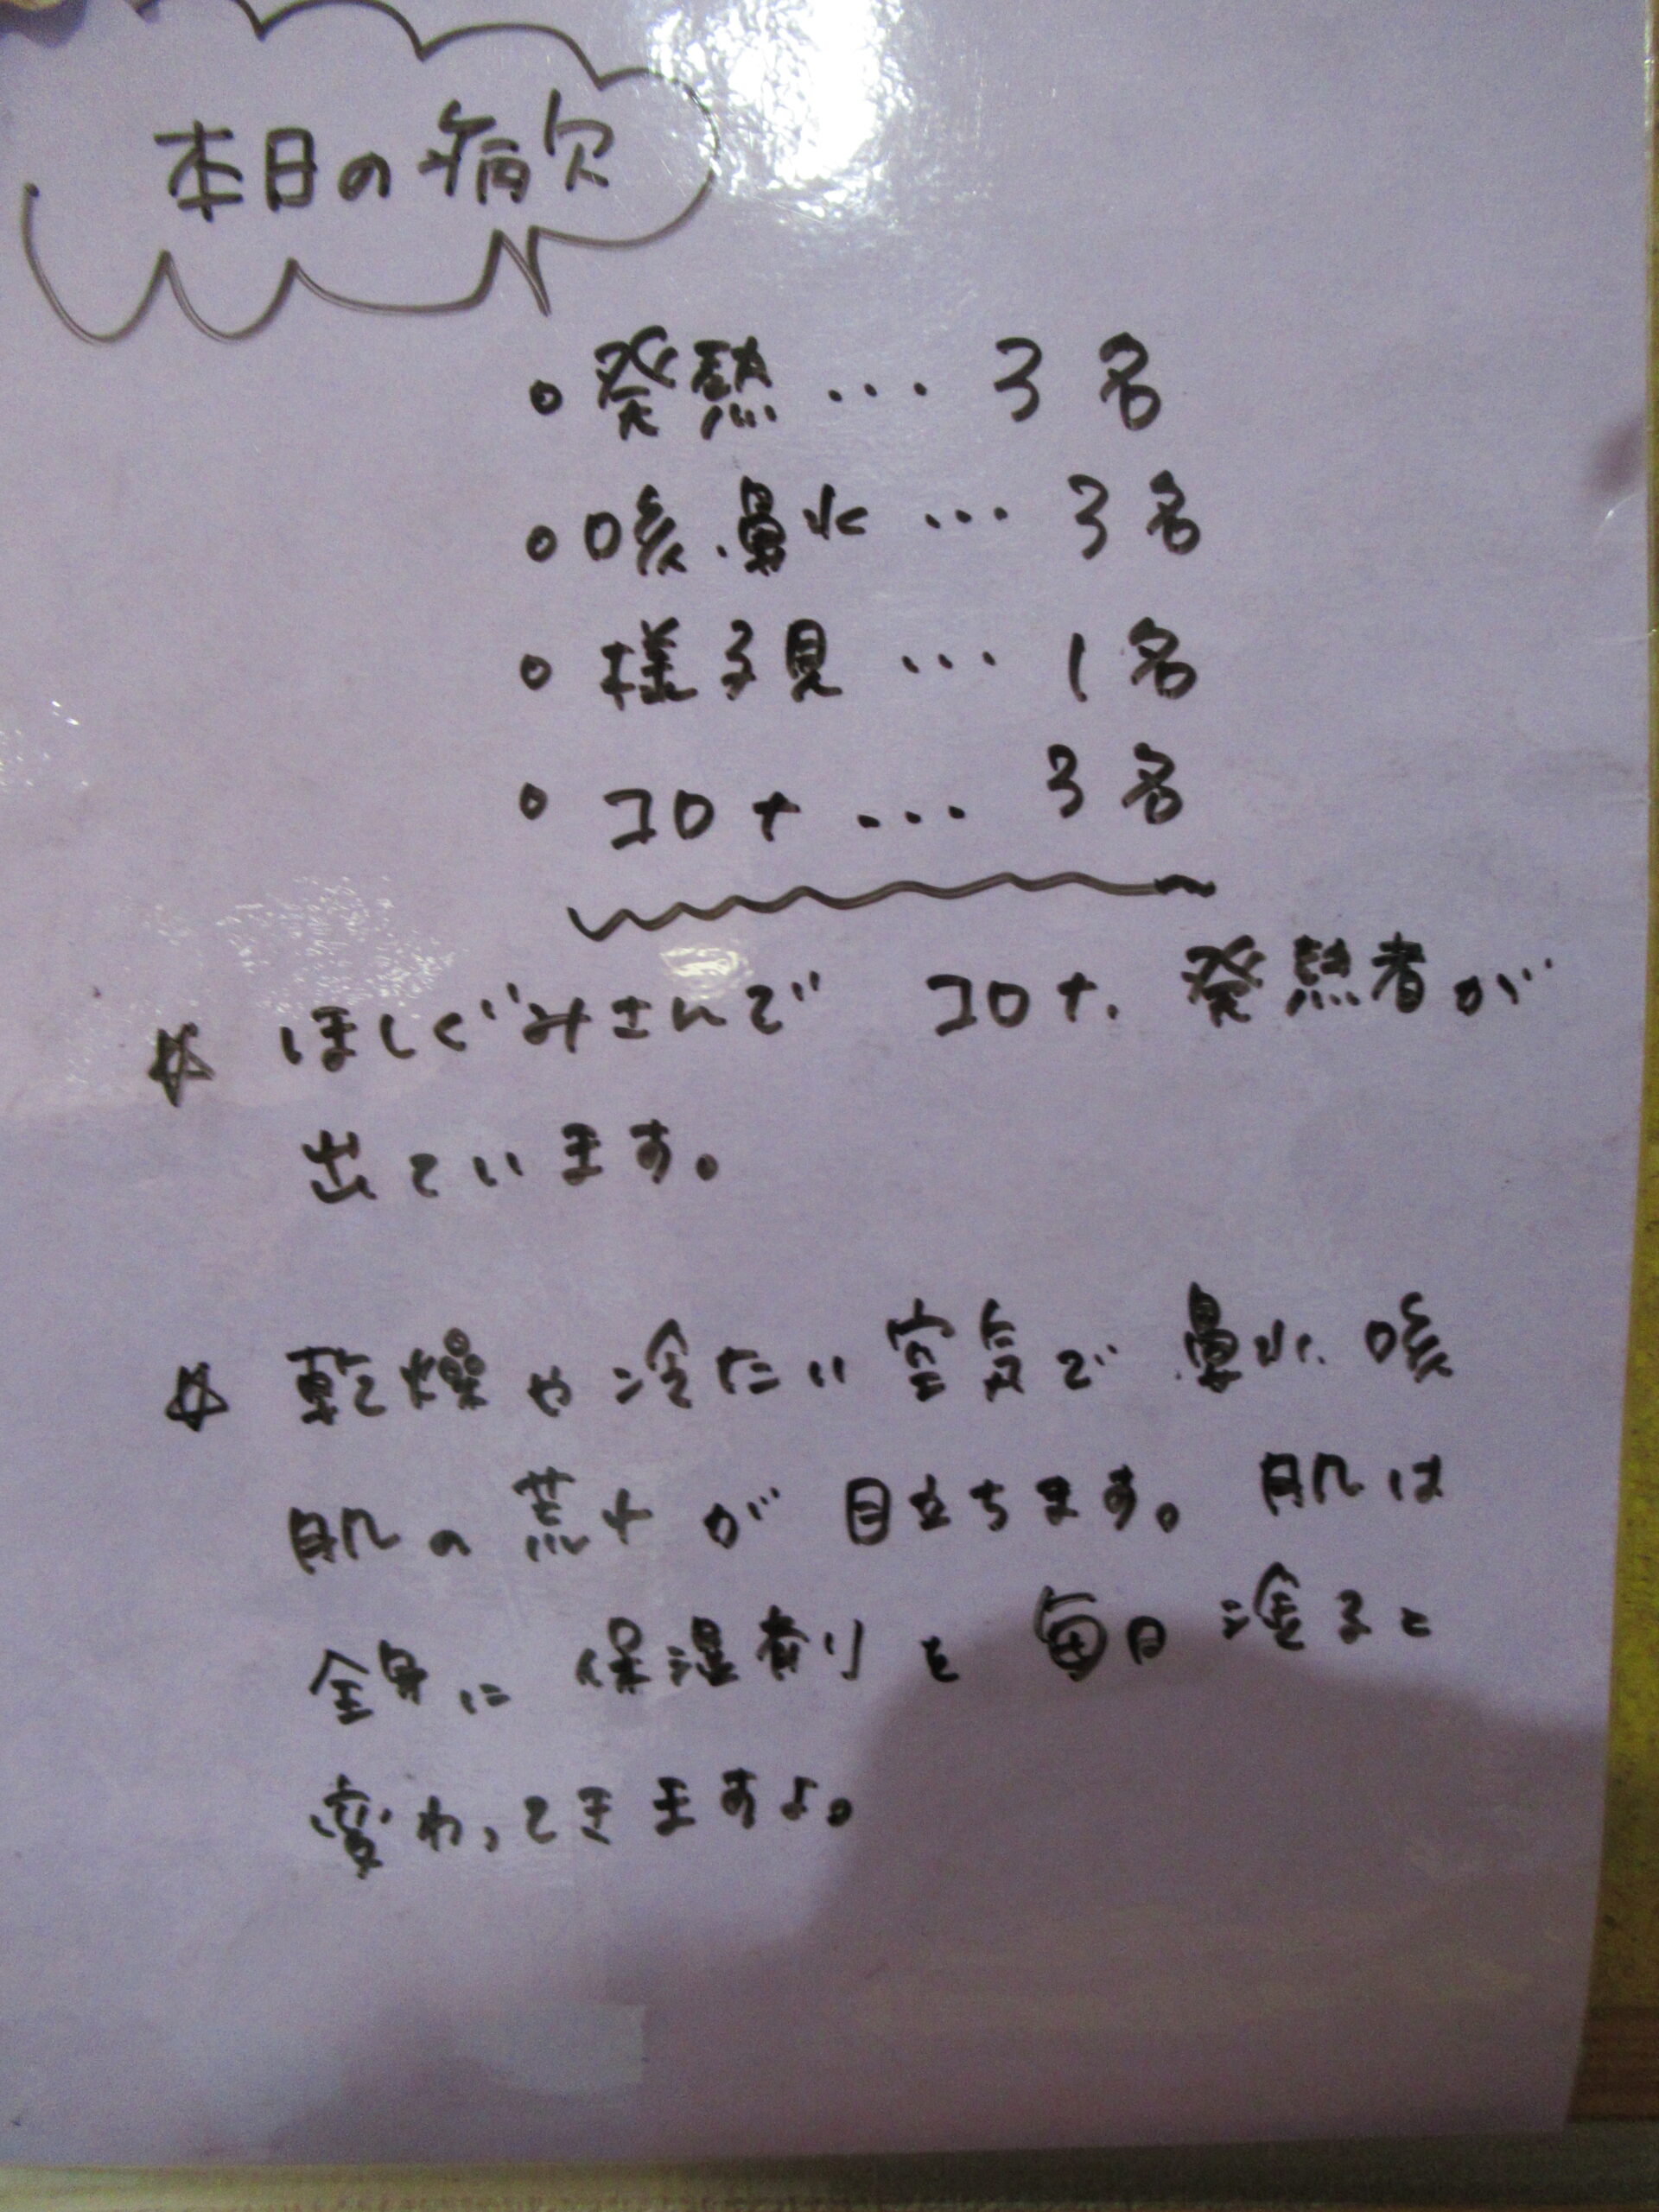 本日の病欠
。発熱 ... 3名
。咳、鼻水 ... 3名
。様子見 ... 1名
。コロナ ... 3名
☆ ほしぐみさんで コロナ、発熱者が
出ています。
☆ 乾燥や冷たい空気で 鼻水、咳
肌の荒れが目立ちます。肌は
全身に保湿剤を毎日塗ると
変わってきますよ。